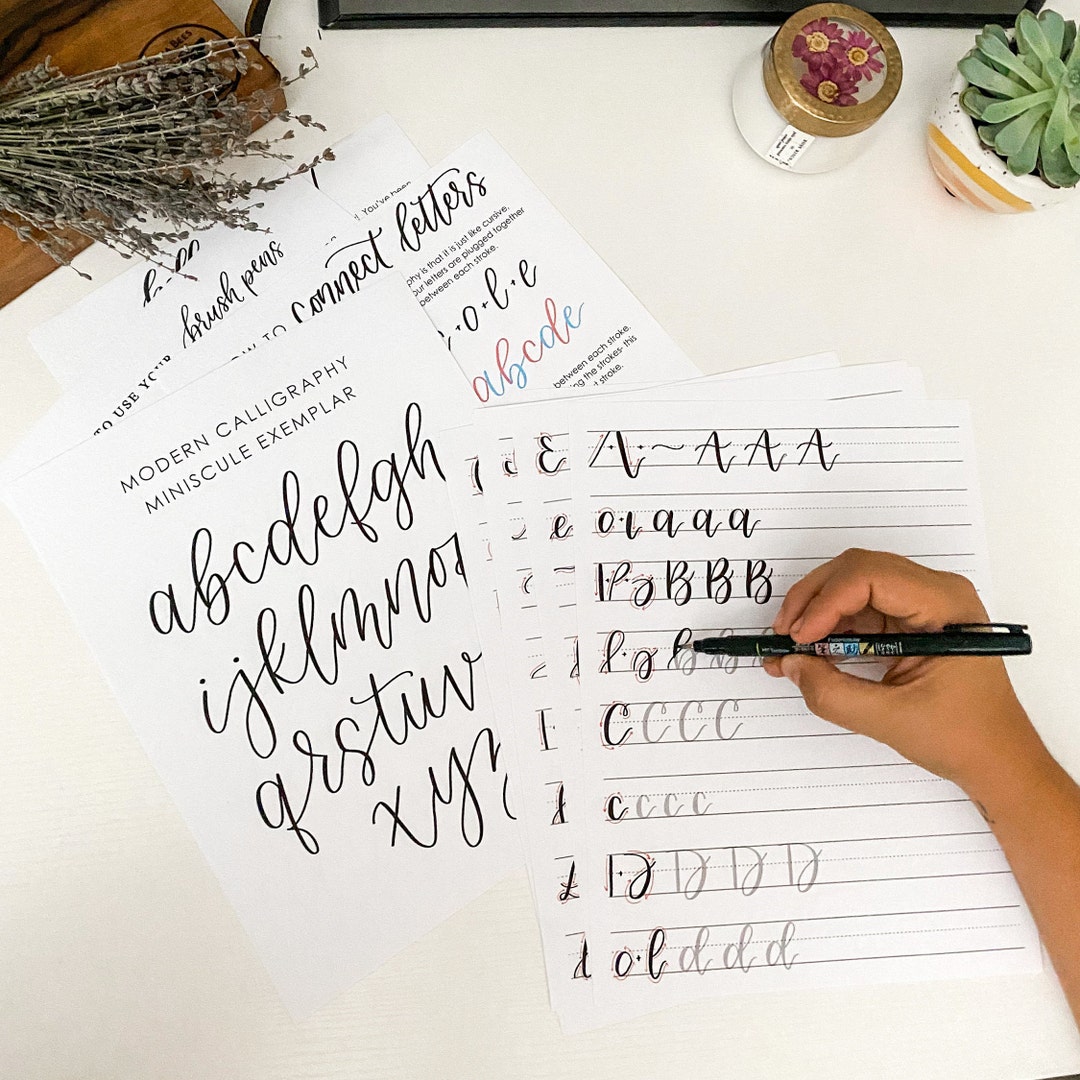 BEES
You've been
brush pens
TO USE YOUR
connect letters
TO
phy is that it is just like cursive.
our letters are plugged together
between each stroke.
+o+l+e
abcde
between each stroke.
ing the strokes- this
stroke.
MODERN CALLIGRAPHY
MINISCULE EXEMPLAR
abcdefgh
ijklmno
qrstuv
xyz
E
A A A
e
a a a
B B B
b b b
C C C C
c c c c
D D D D
o+l d d d